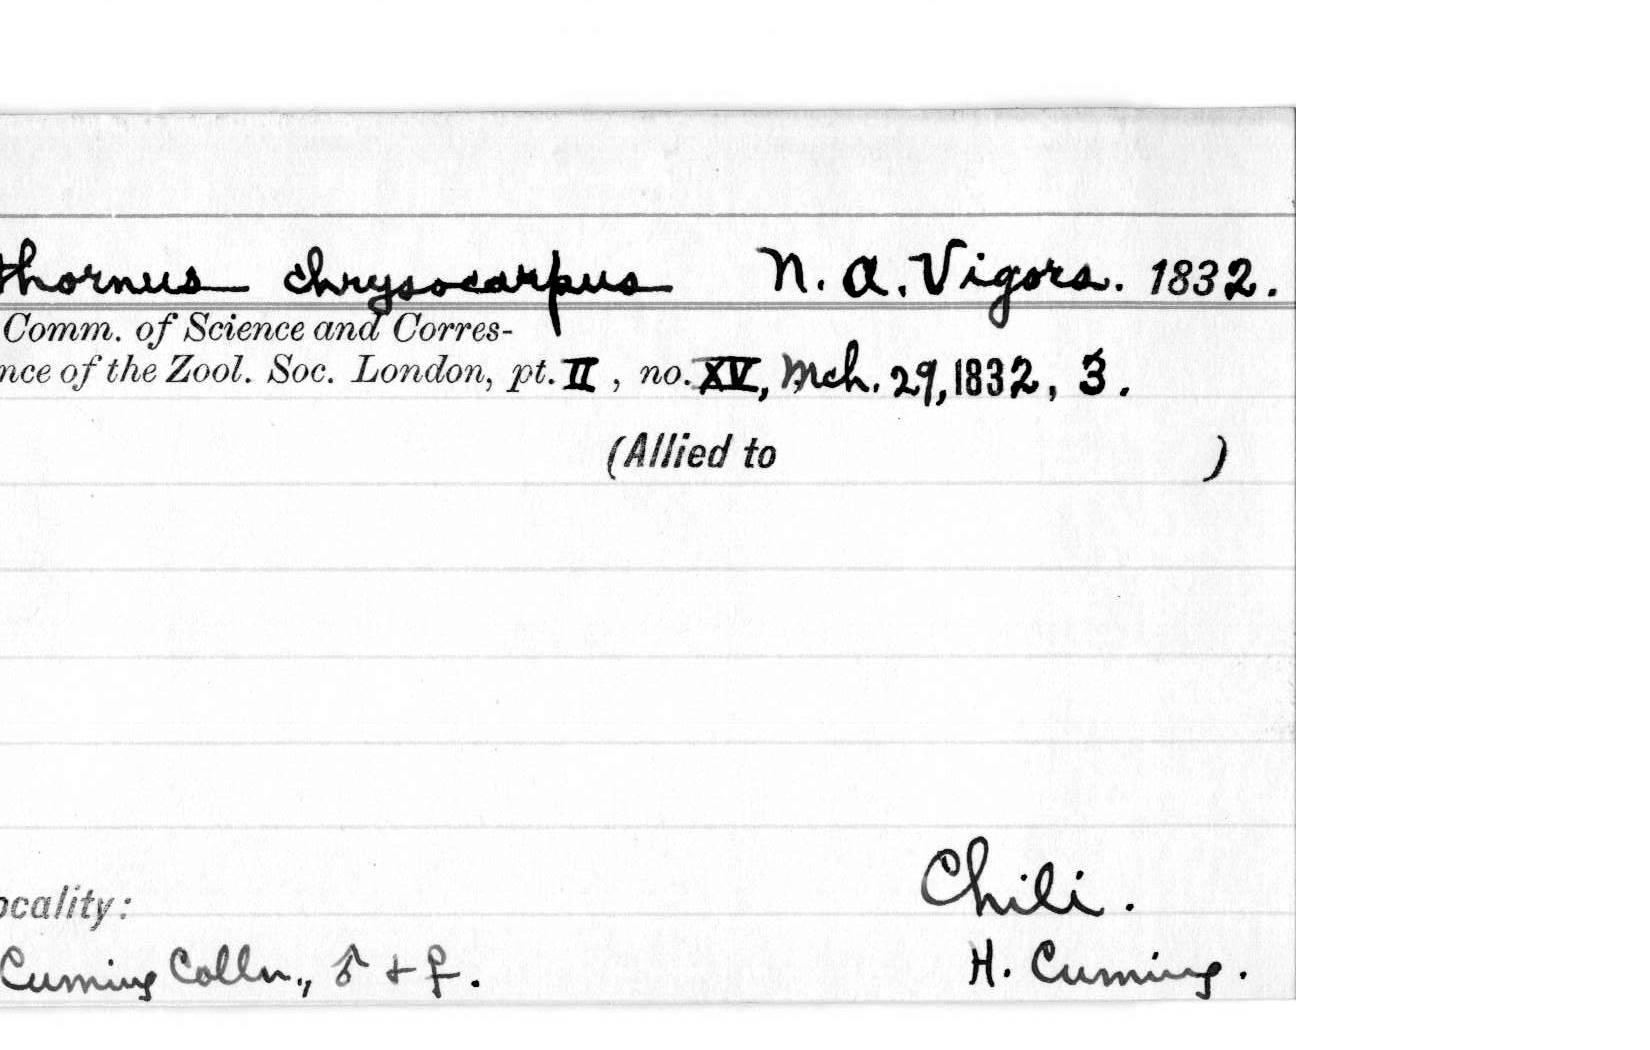 thornus chrysocarpus N. A. Vigors. 1832.
Comm. of Science and Corres-
nce of the Zool. Soc. London, pt. II, no. XV, Mch. 29, 1832, 3.
(Allied to )
ocality: Chili.
Cuming Colln., ♂ + ♀. H. Cuming.